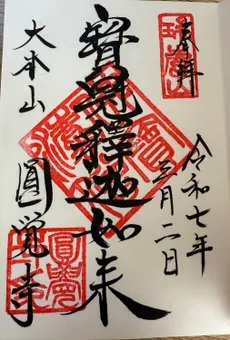 奉拜
令和七年
三月二日
寶冠釋迦如来
大本山
圓覺寺
瑞鹿山